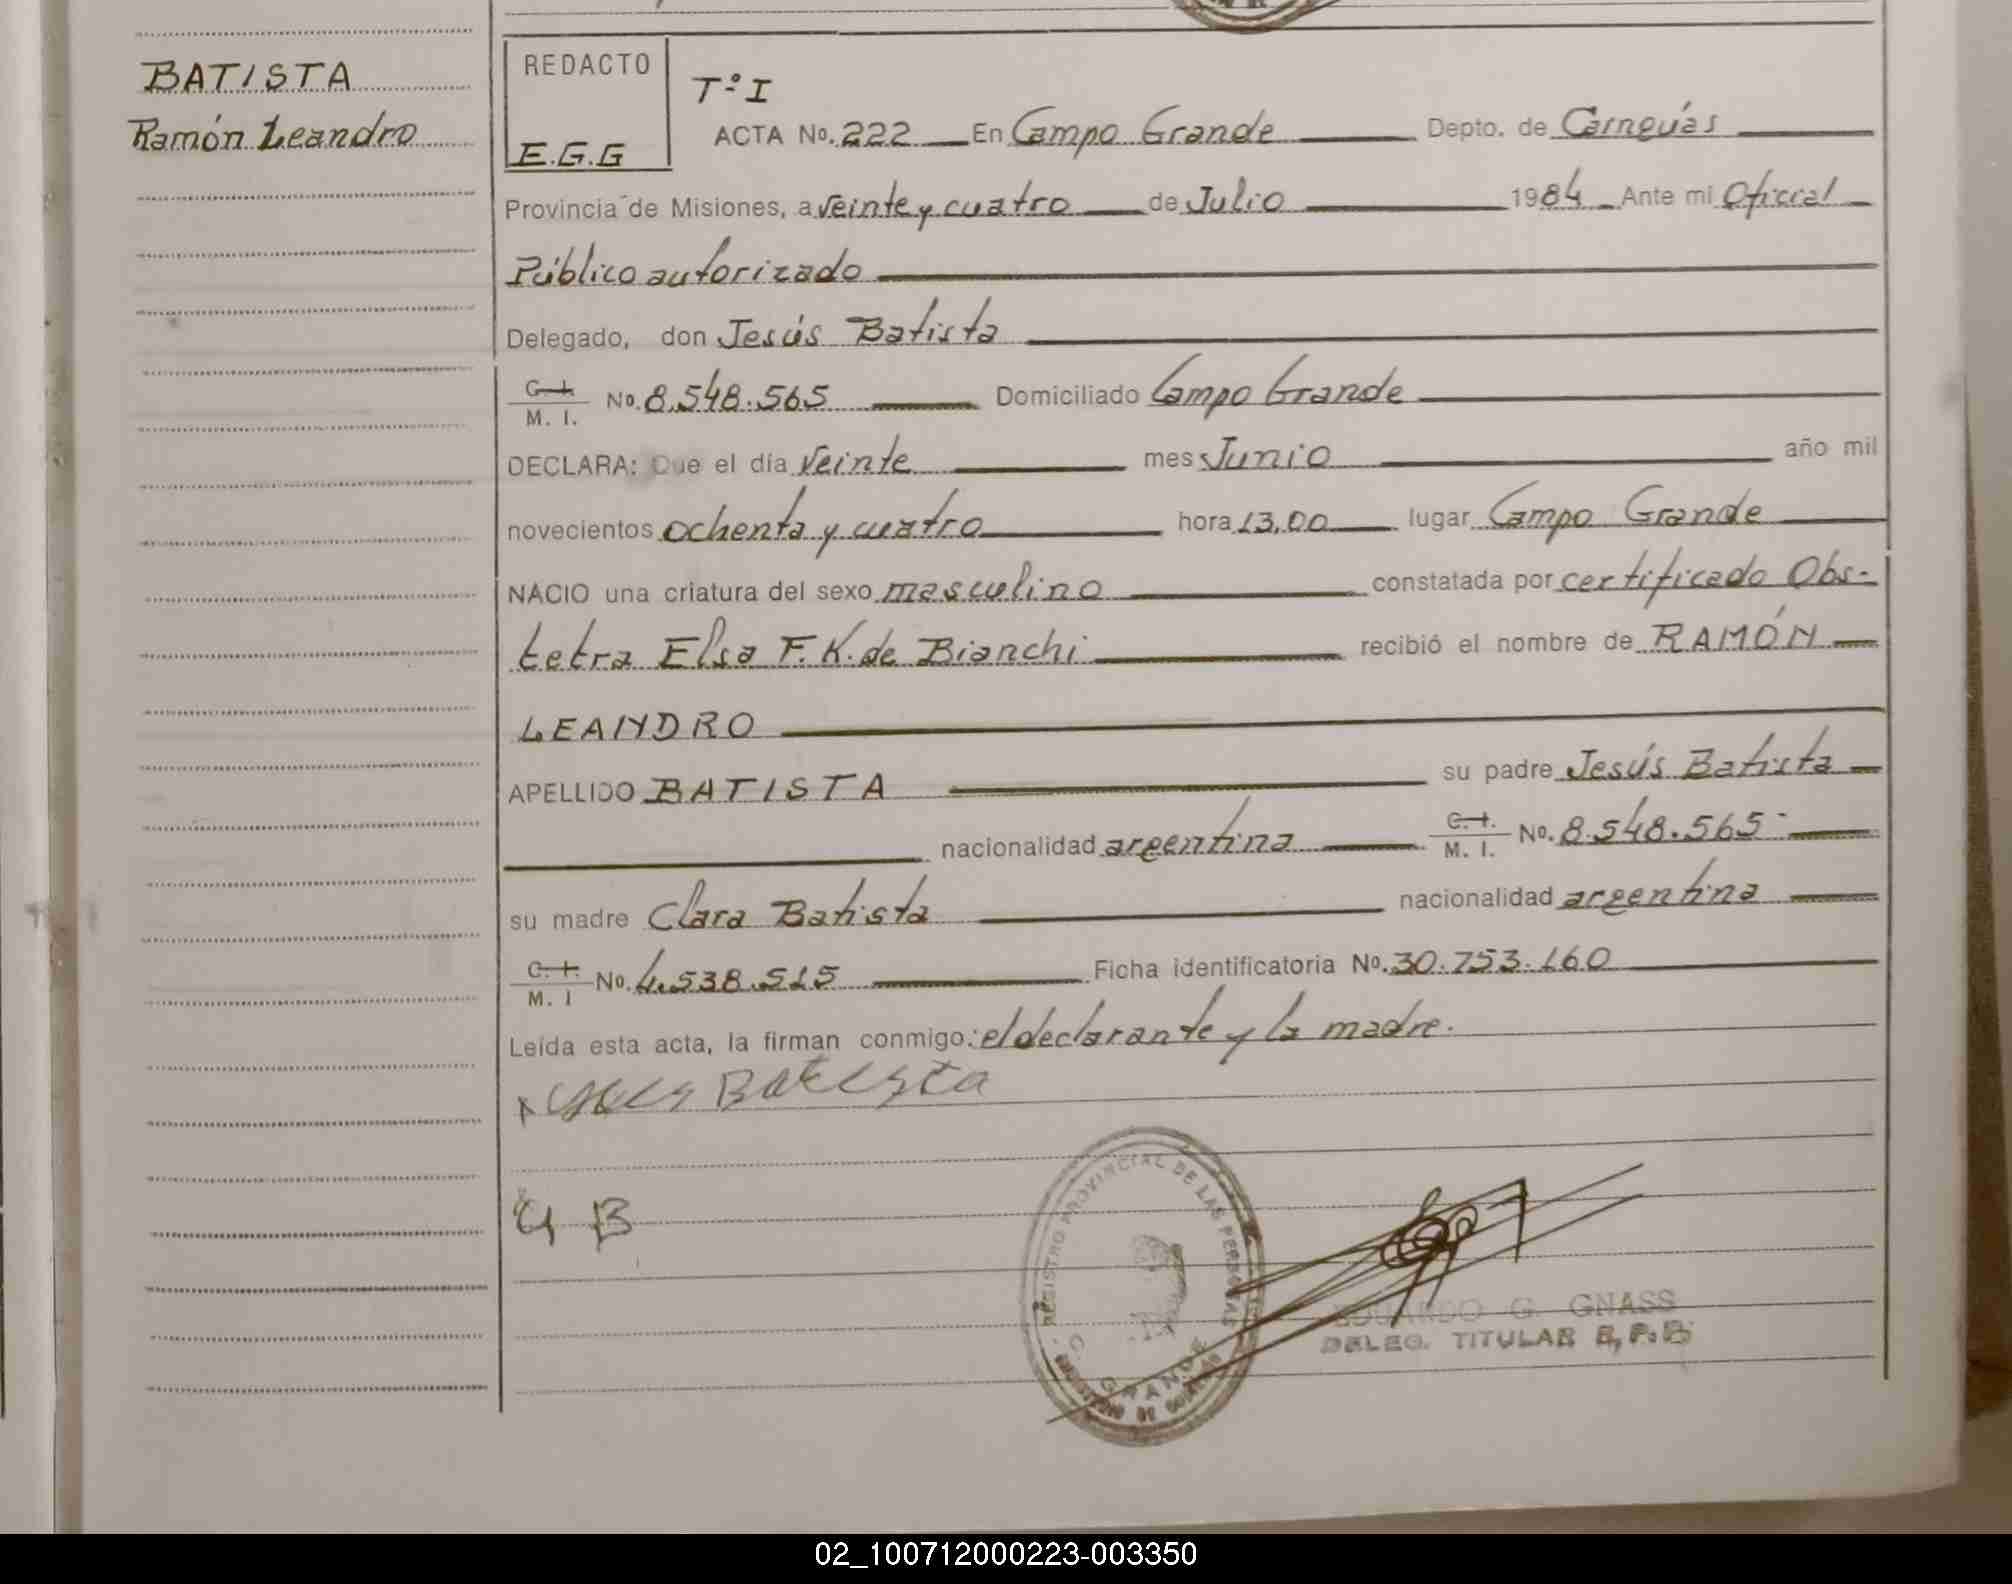 BATISTA
Ramón Leandro
REDACTO
E.G.G
Tº I
ACTA No. 222 En Campo Grande Depto. de Cainguás
Provincia de Misiones, a veinte y cuatro de Julio 1984 Ante mi Oficial
Público autorizado
Delegado, don Jesús Batista
C. I.
M. I. No. 8.548.565 Domiciliado Campo Grande
DECLARA: Que el día veinte mes Junio año mil
novecientos ochenta y cuatro hora 13,00 lugar Campo Grande
NACIO una criatura del sexo masculino constatada por certificado Obs-
tetra Elsa F. K. de Bianchi recibió el nombre de RAMÓN
LEANDRO
APELLIDO BATISTA su padre Jesús Batista
nacionalidad argentina C. I. M. I. No. 8.548.565
su madre Clara Batista nacionalidad argentina
C. I.
M. I No. 4.538.515 Ficha identificatoria No. 30.753.160
Leída esta acta, la firman conmigo: el declarante y la madre.
Batista
B
REGISTRO PROVINCIAL DE LAS PERSONAS
C. GRANDE
EDUARDO G. GNASS
DELEG. TITULAR
02_100712000223-003350